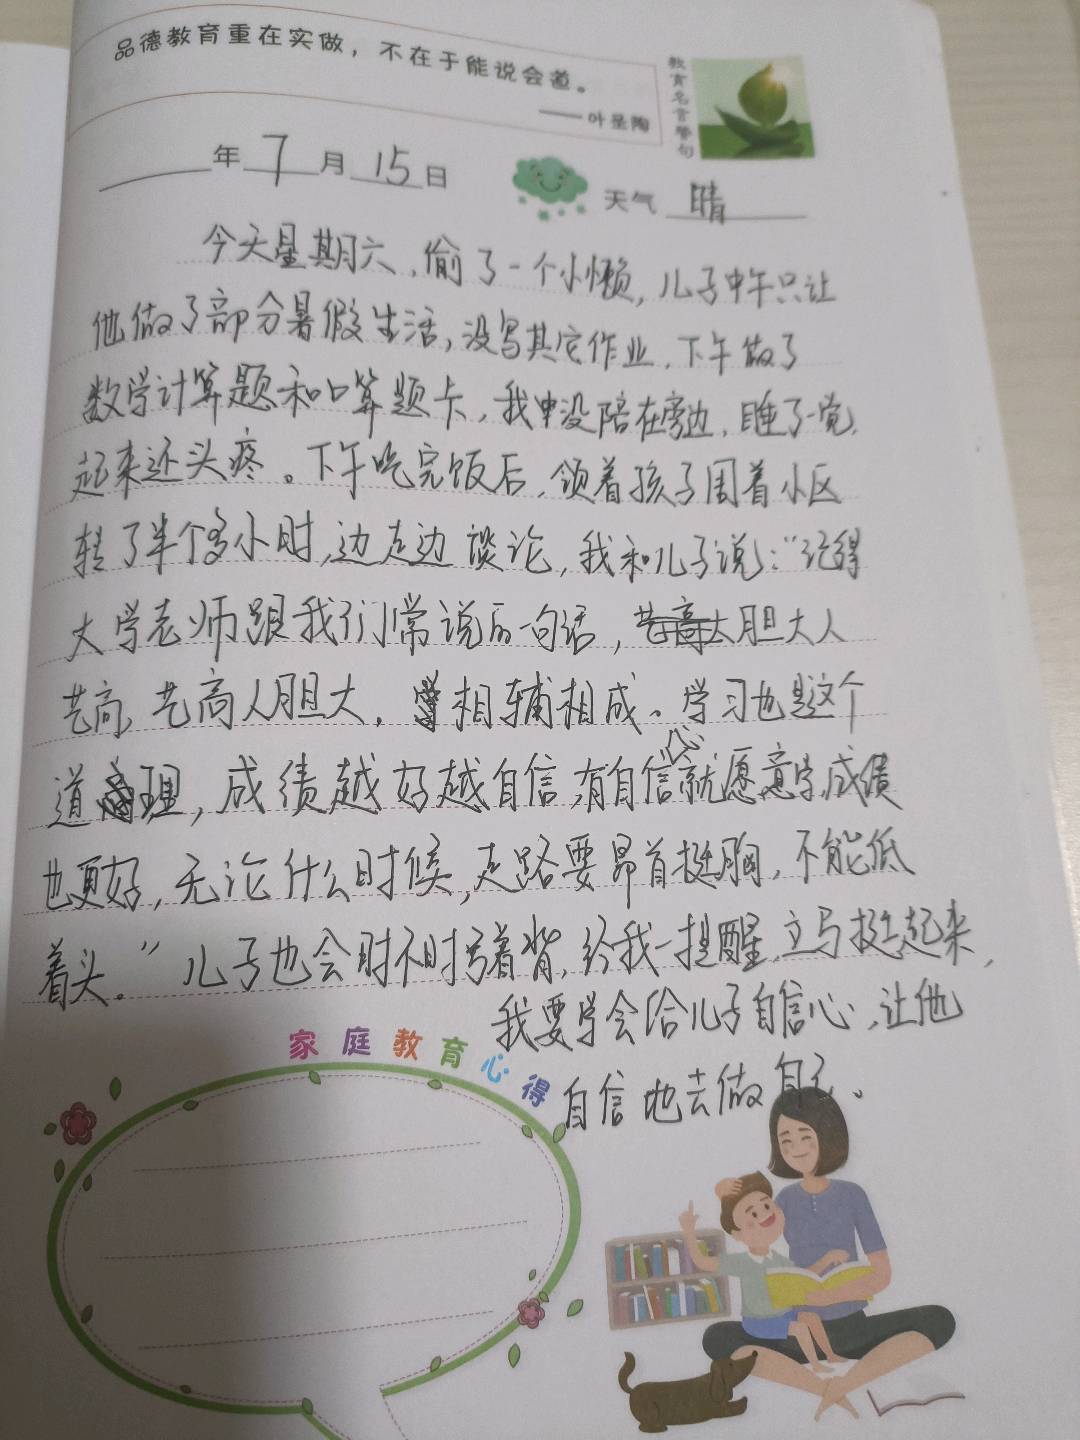 品德教育重在实做，不在于能说会道。
——叶圣陶
教育名言警句
年 7 月 15 日
天气 晴
今天星期六，偷了一个小懒，儿子中午只让
他做了部分暑假生活，没写其它作业，下午做了
数学计算题和口算题卡，我没陪在旁边，睡了一觉，
起来还头疼。下午吃完饭后，领着孩子围着小区
转了半个多小时，边走边谈论，我和儿子说：“记得
大学老师跟我们常说的一句话，艺高大胆大人
艺高，艺高人胆大，相辅相成。学习也是这个
道理，成绩越好越自信，有自信心就愿意学，成绩
也更好，无论什么时候，走路要昂首挺胸，不能低
着头。”儿子也会时不时弯着背，给我一提醒，立马挺起来，
我要学会给儿子自信心，让他
自信地去做自己。
家庭教育心得